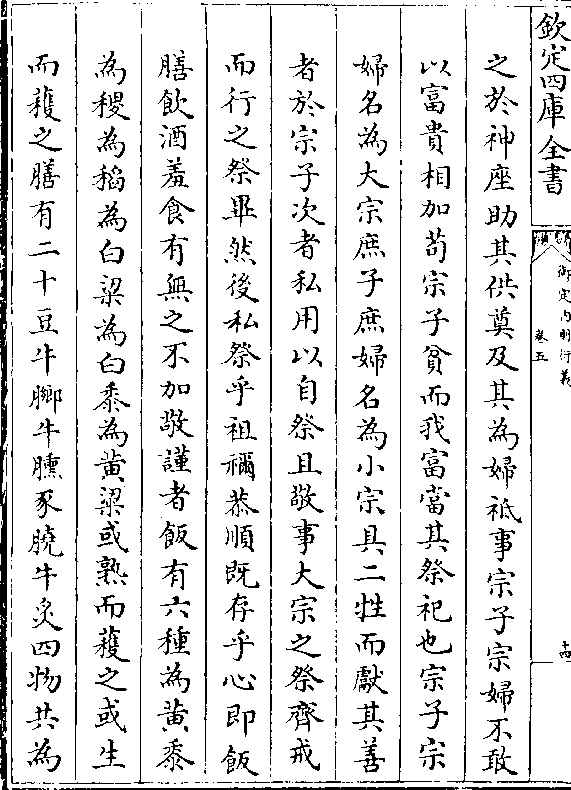 欽定四庫全書
御定內則衍義
卷五
十四
之於神座助其供奠及其為婦祗事宗子宗婦不敢
以富貴相加苟宗子貧而我富當其祭祀也宗子宗
婦名為大宗庶子庶婦名為小宗具二牲而獻其善
者於宗子次者私用以自祭且敬事大宗之祭齊戒
而行之祭畢然後私祭乎祖禰恭順既存乎心即飯
膳飲酒羞食有無之不加敬謹者飯有六種為黃黍
為稷為稻為白粱為白黍為黃粱或熟而穫之或生
而穫之膳有二十豆牛膷牛臐豕膮牛炙四物共為